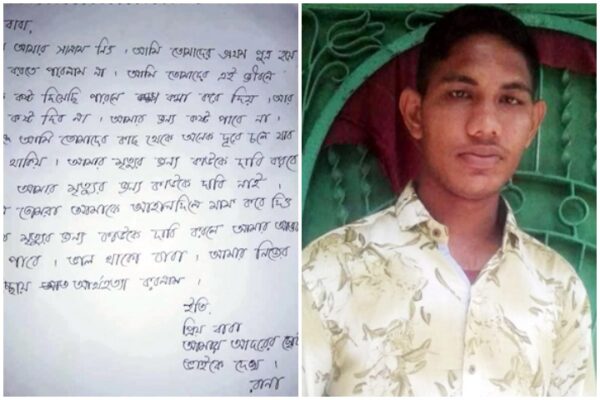 বাবা,
আমার সালাম নিও। আমি তোমাদের প্রথম পুত্র হয়ে
করতে পারলাম না। আমি তোমাদের এই জীবনে
কষ্ট দিয়েছি পারলে ক্ষমা করে দিয়। আর
কষ্ট দিব না। আমার জন্য কষ্ট পাবে না।
আমি তোমাদের কাছ থেকে অনেক দূরে চলে যাব
থাকিয়। আমার মৃত্যুর জন্য কাউকে দাবি করবে
আমার মৃত্যুর জন্য কাউকে দাবি নাই।
তোমরা আমাকে মাফ করে দিও
মৃত্যুর জন্য কাউকে দাবি করলে আমার আত্মা
পাবে। ভাল থাকো বাবা। আমার নিজের
আর্তহত্যা করলাম।
ইতি
প্রিয় বাবা
আমার আদরের ছোট
ভাইকে দেখ।
রানা